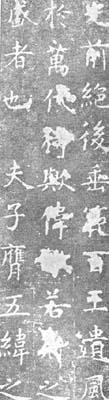 光前絕後垂範百王遺風
於萬代猗歟偉若之
盛者也夫子膺五緯之